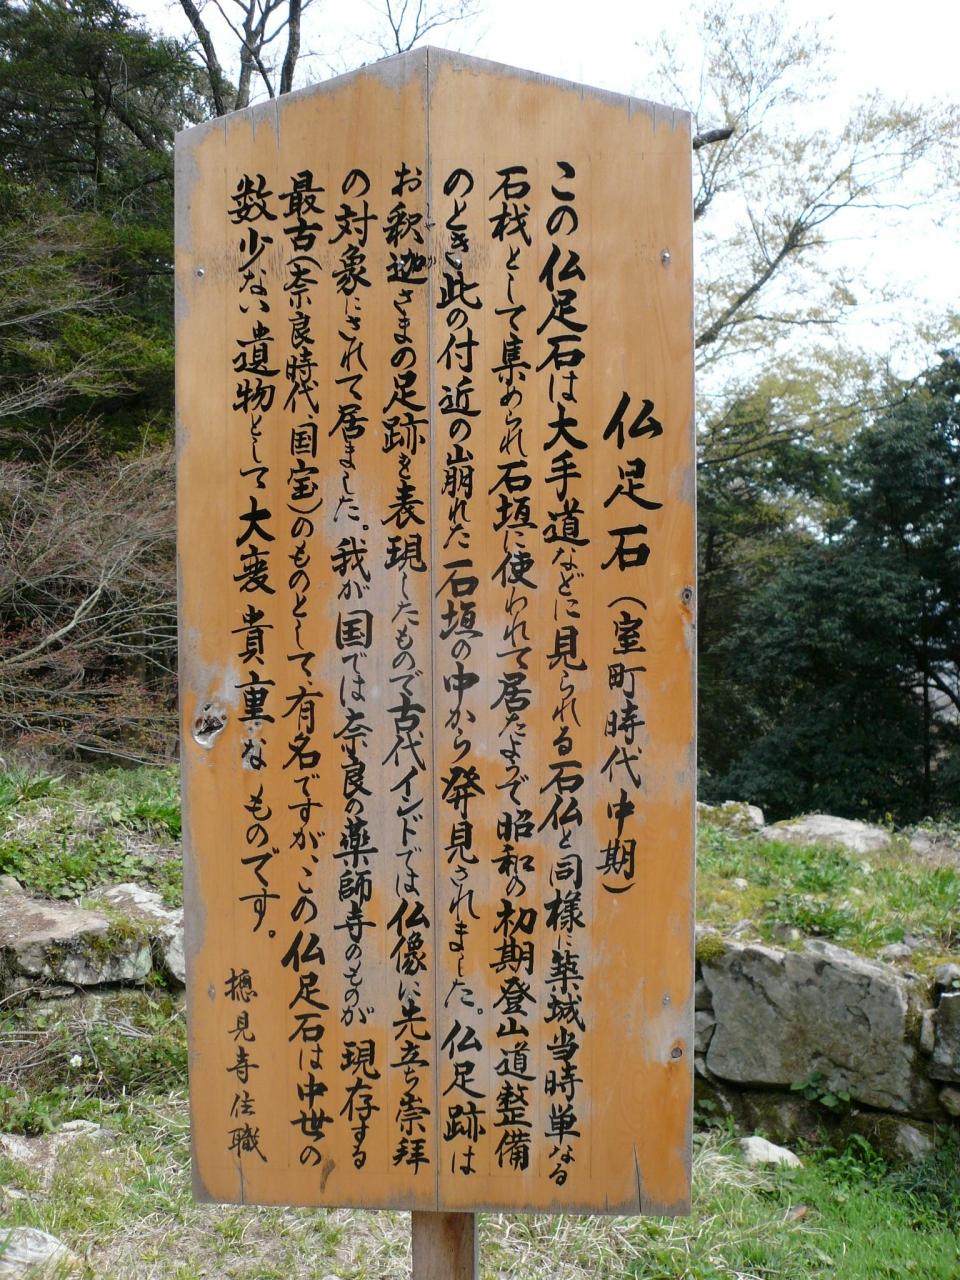 仏足石（室町時代中期）
この仏足石は大手道などに見られる石仏と同様に築城当時単なる
石材として集められ石垣に使われて居たようで昭和の初期登山道整備
のとき此の付近の山崩れた石垣の中から発見されました。仏足跡は
お釈迦さまの足跡を表現したもので古代インドでは仏像に先立ち崇拝
の対象にされて居ました。我が国では奈良の薬師寺のものが現存する
最古（奈良時代、国宝）のものとして、有名ですが、この仏足石は中世の
数少ない遺物として大変貴重なものです。
摠見寺住職